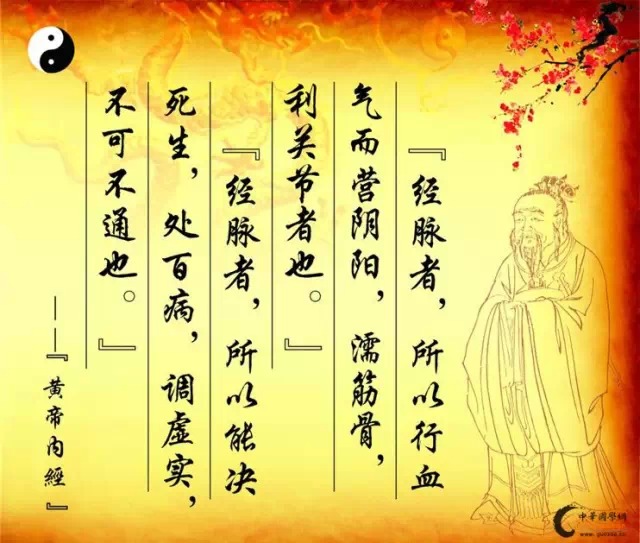 『经脉者，所以行血
气而营阴阳，濡筋骨，
利关节者也。』
『经脉者，所以能决
死生，处百病，调虚实，
不可不通也。』
——『黄帝内經』
中華國學網